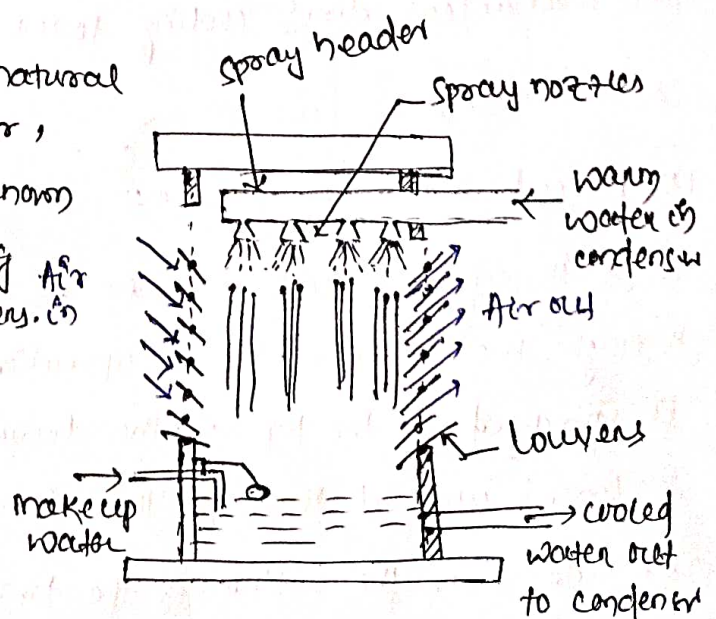 natural
r,
nown
g
ers.
spray header
spray nozzles
warm
water in
condenser
Air
in
Air out
Louvers
makeup
water
cooled
water out
to condenser